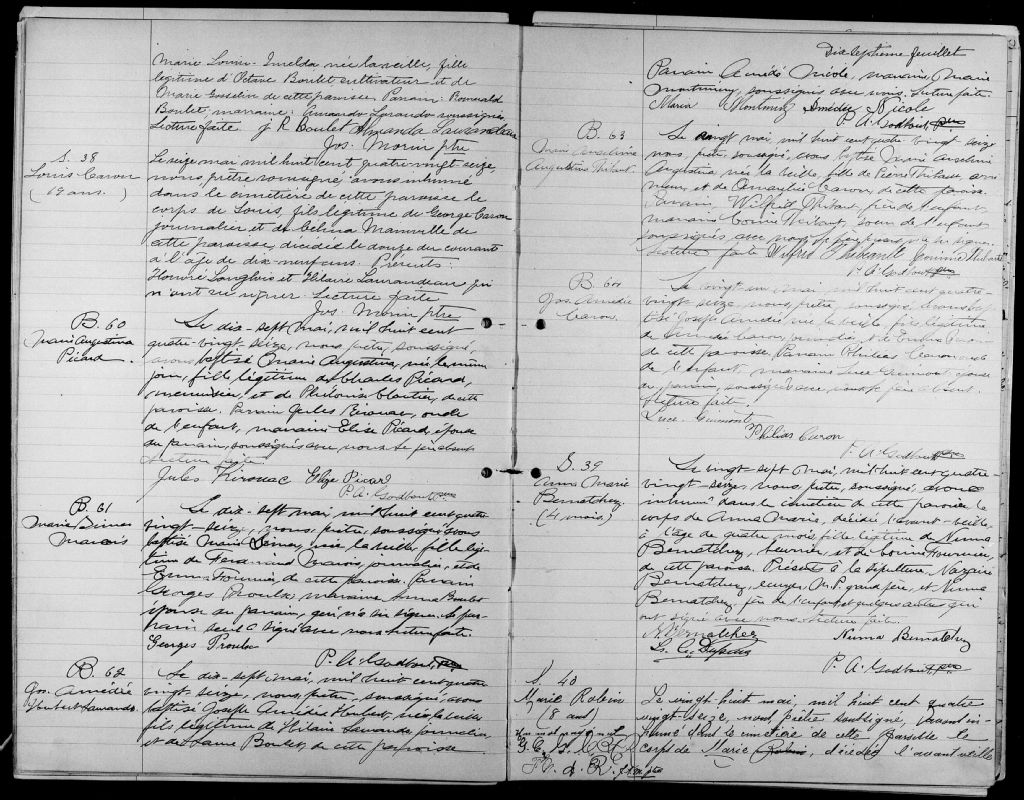 Marie Louise-Imelda née la veille, fille
légitime d'Octave Boulet cultivateur et de
Marie Gosselin de cette paroisse Parrain: Romuald
Boulet, marraine: Amanda Lavandre soussignés
Lecture faite. J R Boulet Amanda
Jos. Morin ptre
S. 38
Louis Caron
(19 ans.)
Le seize mai mil huit cent quatre vingt seize,
nous, prêtre soussigné, avons inhumé
dans le cimetière de cette paroisse le
corps de Louis, fils légitime de George Caron
journalier et de Célina Mainville de
cette paroisse, décédé le douze du courant
à l'âge de dix-neuf ans. Présents:
Honoré Langlois et Hilaire Laurandeau qui
n'ont su signer. Lecture faite
Jos. Morin ptre
B. 60
Marie Augustina
Picard
Le dix-sept mai, mil huit cent
quatre-vingt-seize, nous, prêtre, soussigné,
avons baptisé Marie Augustina, née le même
jour, fille légitime de Charles Picard,
menuisier, et de Philomène Cloutier, de cette
paroisse. Parrain Jules Kirouac, oncle
de l'enfant, marraine Elise Picard, épouse
du parrain, soussignés avec nous
Lecture faite.
Jules Kirouac Elize Picard
P. A. Godbout, ptre
B. 61
Marie
Marcois
Le dix-sept mai, mil huit cent quatre
vingt-seize, nous, prêtre, soussigné, avons
baptisé Marie née la veille, fille légi-
time de Ferdinand journalier, et de
Emma Fournier, de cette paroisse. Parrain
Georges Proulx marraine Anna Boulet
épouse du parrain, qui n'a su signer. Le par-
rain seul a signé avec nous. Lecture faite.
Georges Proulx
P. A. Godbout, ptre
B. 62
Jos. Amédée
Herbert
Le dix-sept, mai, mil huit cent quatre
vingt-seize, nous, prêtre, soussigné, avons
baptisé Joseph Amédée Herbert, né la veille
fils légitime de Hilaire journalier
et de Boulet, de cette paroisse
Dix septième feuillet
Parrain Amédé Nicole, marraine, Marie
Montminy, soussignés avec nous. Lecture faite
Maria Montminy Amédée Nicole
P. A. Godbout, ptre
B. 63
Marie Anselmine
Augustine Thibaut.
Le vingt mai, mil huit cent quatre vingt seize
nous, prêtre, soussigné, avons baptisé Marie Anselmine
Augustina née la veille, fille de Pierre Thibaut,
et de Caron, de cette paroisse.
Parrain, Wilfrid Thibaut, frère de l'enfant,
marraine Corinne Thibaut, soeur de l'enfant
soussignés avec nous
Lecture faite Wilfrid Thibault Corinne Thibault
P. A. Godbout, ptre
B. 64
Jos. Amédée
Caron.
Le vingt mai, mil huit cent quatre-
vingt-seize, nous, prêtre, soussigné, avons bap-
tisé Joseph Amédée né la veille, fils légitime
de Amédée Caron, journalier, et de Caron
de cette paroisse, Parrain Philias Caron oncle
de l'enfant, marraine Luce Guimont épouse
du parrain, soussignés avec nous
Lecture faite.
Luce Guimont
Philias Caron
P. A. Godbout, ptre
S. 39
Anna Marie
Bernatchez
(4 mois)
Le vingt-sept mai, mil huit cent quatre-
vingt-seize, nous, prêtre, soussigné, avons
inhumé dans le cimetière de cette paroisse le
corps de Anna Marie, décédée l'avant-veille,
à l'âge de quatre mois, fille légitime de Numa
Bernatchez, beurrier, et de Fournier,
de cette paroisse. Présents à la sépulture Nazaire
Bernatchez, écuyer, M.P. grand père, et Numa
Bernatchez, père de l'enfant, et quelques autres qui
ont signé avec nous. Lecture faite.
N. Bernatchez Numa Bernatchez
P. A. Godbout, ptre
S. 40
Marie Robin
(8 ans)
Le vingt huit mai, mil huit cent quatre
vingt seize, nous prêtre soussigné, avons in-
humé dans le cimetière de cette paroisse le
corps de Marie Robin, décédée l'avant veille